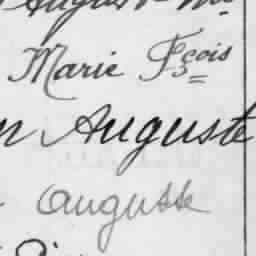 Marie Fçois
Auguste
auguste